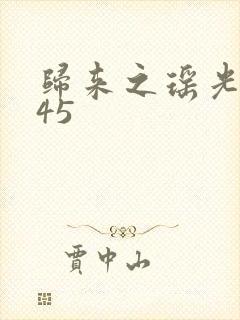 歸来之瑶光
45
賈中山